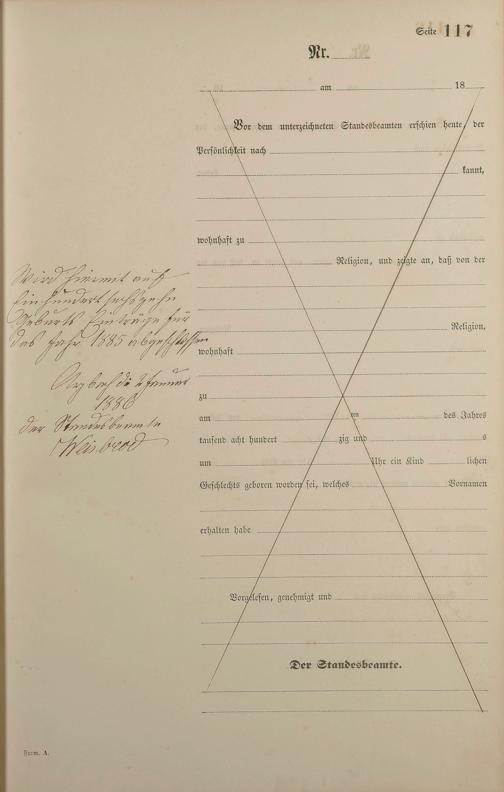 Seite 117
Nr.
am 18
Vor dem unterzeichneten Standesbeamten erschien heute, der
Persönlichkeit nach
kannt,
wohnhaft zu
Religion, und zeigte an, daß von der
Religion,
wohnhaft
zu
am ten des Jahres
tausend acht hundert zig und s
um Uhr ein Kind lichen
Geschlechts geboren worden sei, welches Vornamen
erhalten habe
Vorgelesen, genehmigt und
Der Standesbeamte.
Wird hiermit auf
Einhundertsechszehn
Geburts Einträge für
das Jahr 1885 abgeschlossen
Januar
1886
der Standesbeamte
Weisbrod
Form. A.